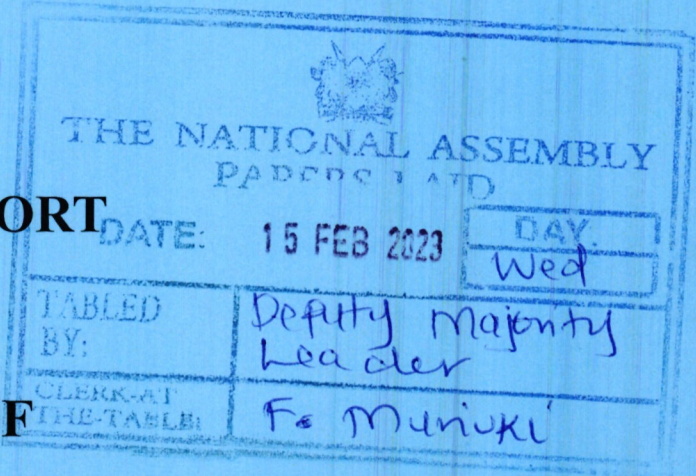 THE NATIONAL ASSEMBLY
PAPERS LAID
ORT
DATE: 15 FEB 2023 DAY.
Wed
TABLED BY: Deputy Majority Leader
CLERK-AT THE-TABLE: F. Muriuki
F